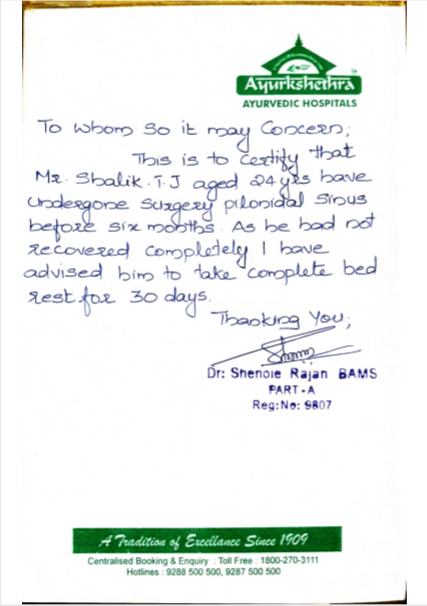 Ayurkshethra
AYURVEDIC HOSPITALS
To whom so it may Concern,
This is to certify that
Mr. Shalik.T.J aged 24yrs have
undergone surgery pilonidal sinus
before six months. As he had not
recovered completely I have
advised him to take complete bed
rest for 30 days.
Thanking You,
Dr: Shenoie Rajan BAMS
PART-A
Reg:No: 9807
A Tradition of Excellence Since 1909
Centralised Booking & Enquiry : Toll Free : 1800-270-3111
Hotlines : 9288 500 500, 9287 500 500